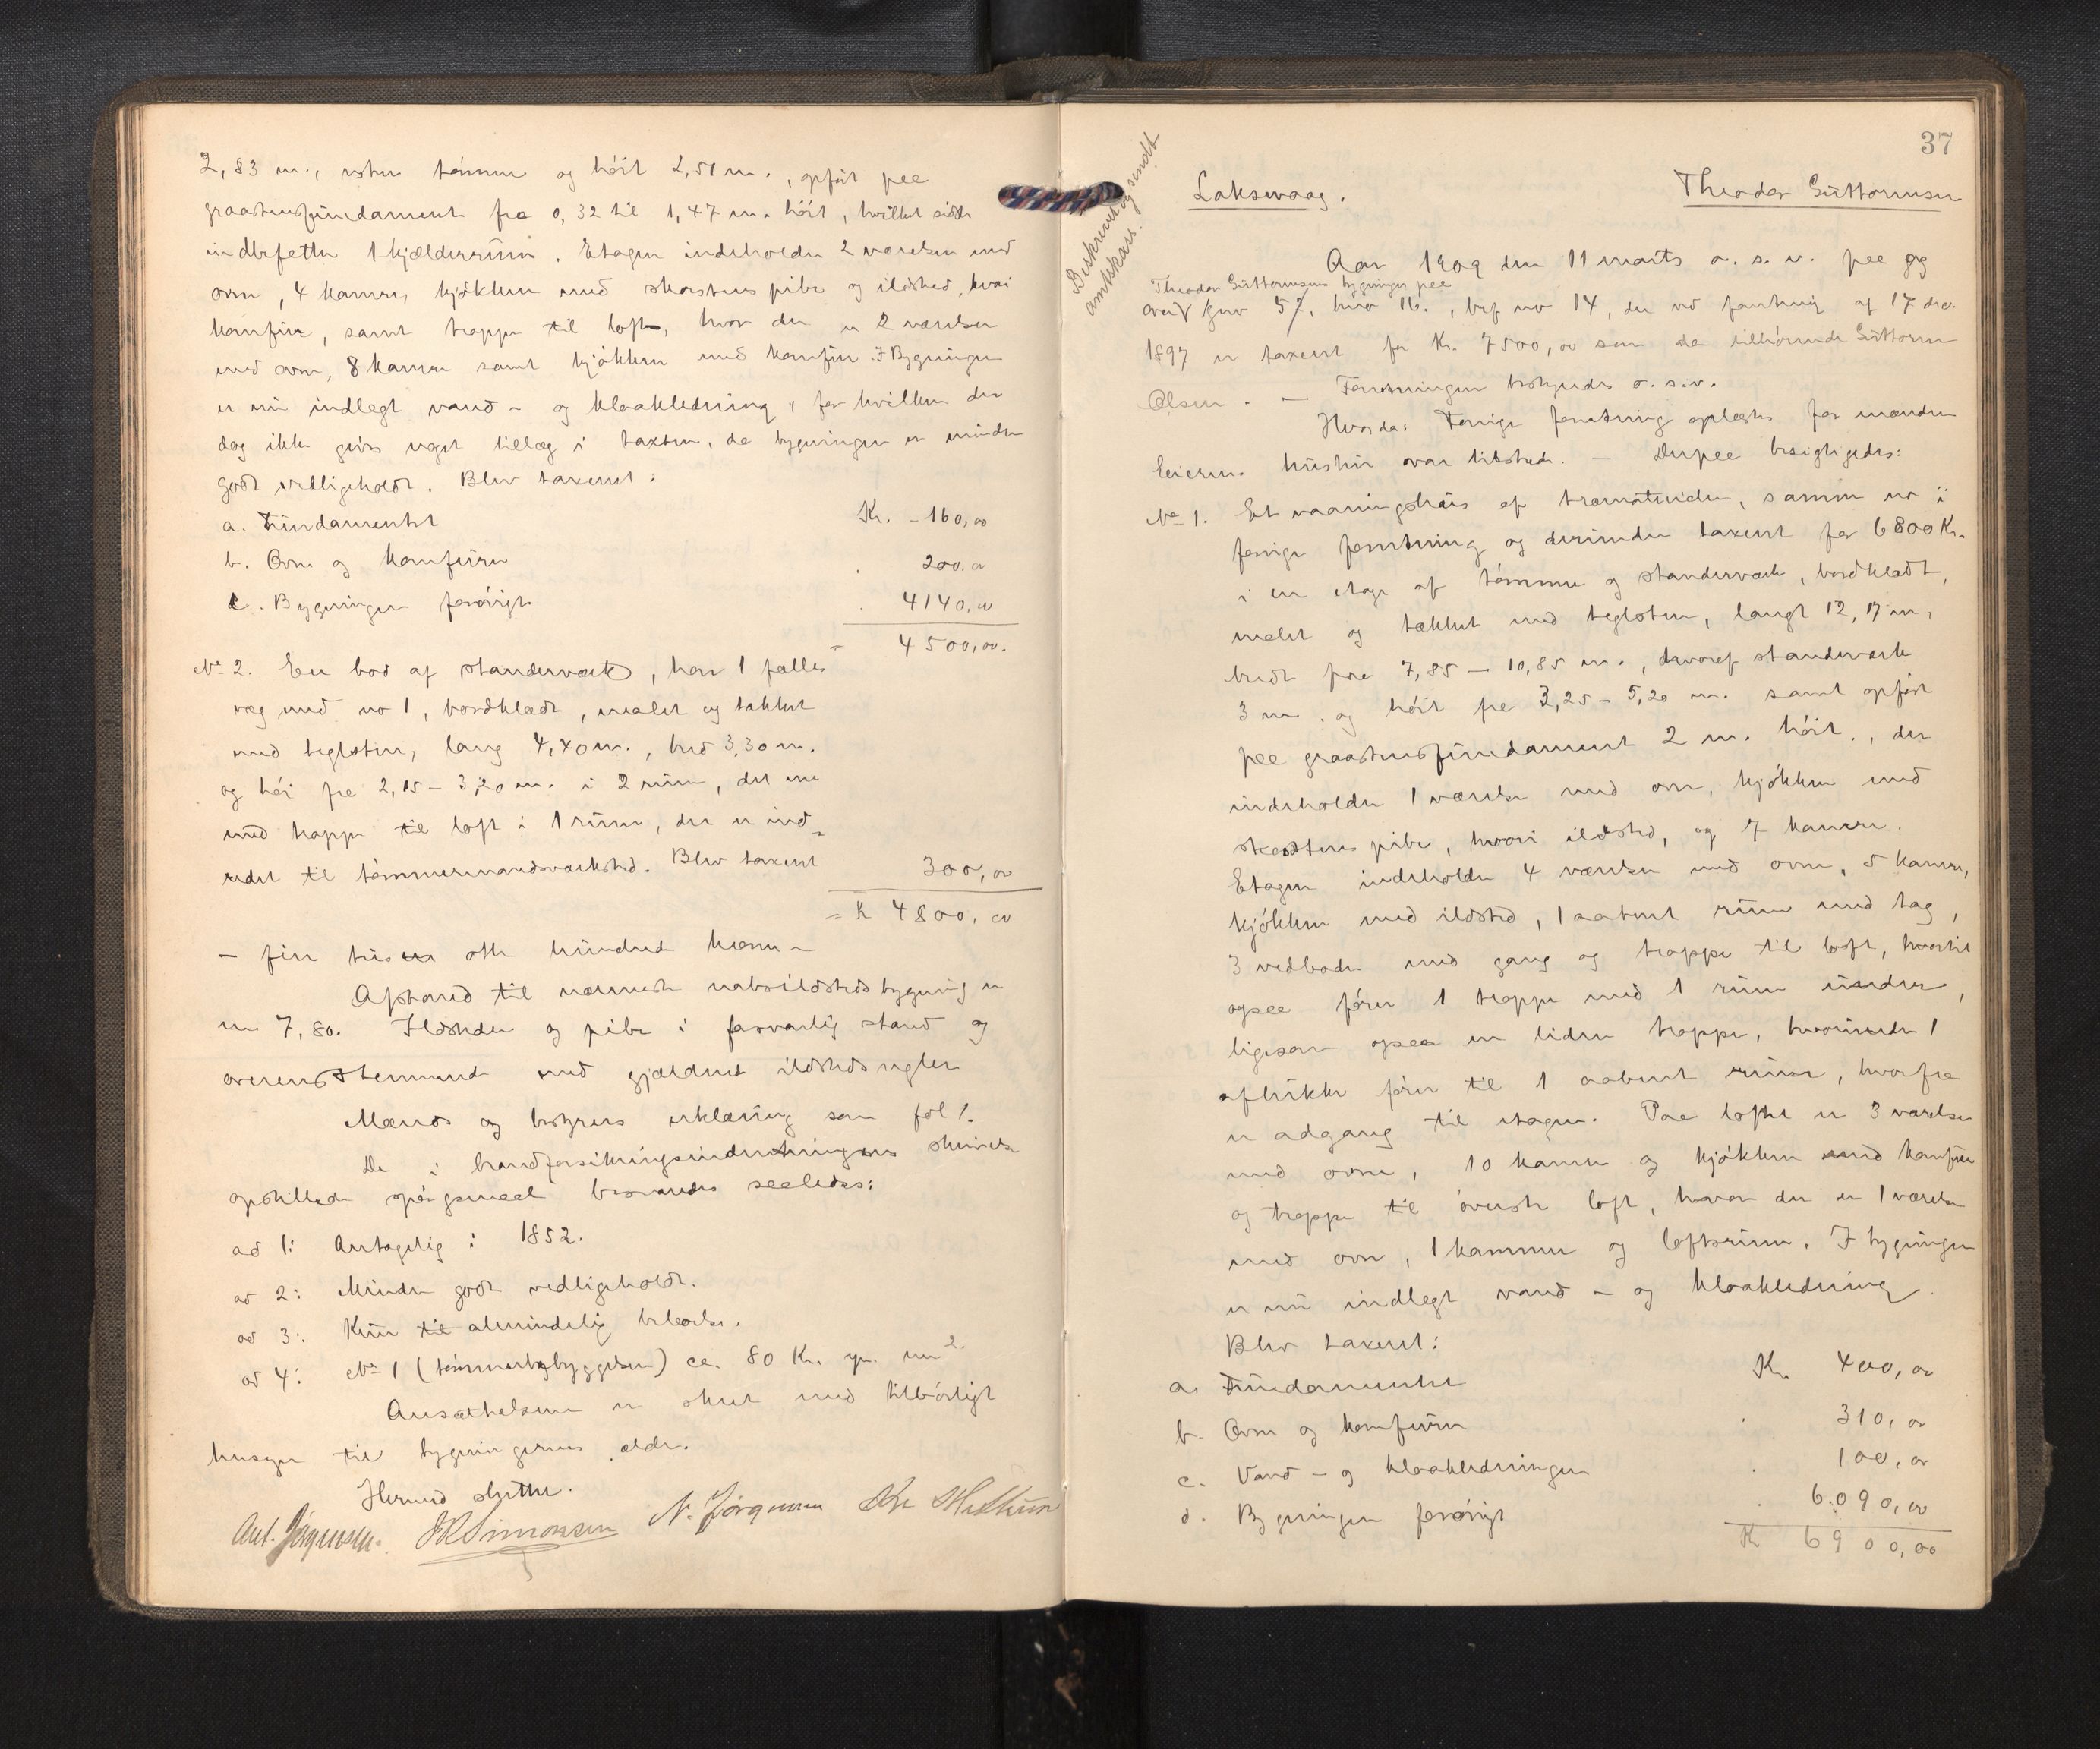 2,83 m., resten tømmer og høit 2,51 m., opført paa
graastensfundament fra 0,32 til 1,47 m. høit, hvilket sidste
indbefatter 1 kjælderrum. Etagen indeholder 2 værelser med
ovn, 4 kamre, kjøkken med skorstenspibe og ildsted, hvori
komfur, samt trappe til loft, hvor der er 2 værelser
med ovn, 8 kamre samt kjøkken med komfur. I Bygningen
er nu indlagt vand- og kloakledning, for hvilken der
dog ikke gives noget tillæg i taxten, da bygningen er mindre
godt vedligeholdt. Blev taxeret:
a. Fundamentet Kr. - 160,00
b. Ovne og komfurer 200.00
c. Bygningen forøvrigt 4140,00
= 4500,00.
No 2. En bod af standerværk, har 1 fælles
væg med no 1, bordklædt, malet og tækket
med teglsten, lang 4,40 m., bred 3,30 m.
og høi fra 2,15 - 3,20 m. i 2 rum, det ene
med trappe til loft i 1 rum, der er ind-
redet til tømmermandsværksted. Blev taxeret 300,00
= K 4800,00
- fire tusen otte hundred kroner -
Afstand til nærmeste naboildstedsbygning er
m 7,80. Ildsteder og pibe i forsvarlig stand og
overensstemmende med gjældende ildstedsregler
Mænds og bestyrers erklæring som fol 1.
De i brandforsikringsindretningens skrivelse
opstillede spørgsmaal besvaredes saaledes:
ad 1: Antagelig i 1852.
ad 2: Mindre godt vedligeholdt.
ad 3: Kun til almindelig beboelse.
ad 4: No 1 (tømmerbebyggelsen) ca. 80 Kr. pr. m2.
Ansættelserne er skeet med tilbørligt
hensyn til bygningernes ælde.
Hermed sluttet.
Ant. Jørgensen. J R Simonsen N. Jørgensen
37
Beskrevet og sendt
amtskass.
Laksevaag. Theodor Guttormsen
Aar 1909 den 11 marts o. s. v. paa og
Theodor Guttormsens bygninger paa
over gnr 52, bnr 16., brf no 14, der ved forretning af 17 dec.
1897 er taxeret for Kr. 7500,00 som da tilhørende Guttorm
Olsen. — Forretningen bestyredes o. s. v.
Hvorda: Forrige forretning oplæstes for mændene
Eierens hustru var tilstede. — Derpaa besigtigedes:
No 1. Et vaaningshus af træmaterialer, samme no i
forrige forretning og derunder taxeret for 6800 Kr.
i en etage af tømmer og standerværk, bordklædt,
malet og tækket med teglsten, langt 12,17 m,
bredt fra 7,85 - 10,85 m., hvoraf standerværk
3 m. og høit fra 3,25 - 5,20 m. samt opført
paa graastensfundament 2 m. høit., der
indeholder 1 værelse med ovn, kjøkken med
skorstenspibe, hvori ildsted, og 7 kamre.
Etagen indeholder 4 værelser med ovne, 5 kamre,
kjøkken med ildsted, 1 aabent rum med tag,
3 vedboder med gang og trappe til loft, hvortil
ogsaa fører 1 trappe med 1 rum under,
ligesom ogsaa en liden trappe, hvorunder 1
aflukke fører til 1 aabent rum, hvorfra
er adgang til etagen. Paa loftet er 3 værelser
med ovne, 10 kamre og kjøkken med komfur
og trappe til øverste loft, hvor der er 1 værelse
med ovn, 1 kammer og loftsrum. I bygningen
er nu indlagt vand- og kloakledning
Blev taxeret:
a. Fundamentet Kr. 400,00
b. Ovne og komfurer 310,00
c. Vand- og kloakledningen 100,00
d. Bygningen forøvrigt 6.090,00
K 6900,00